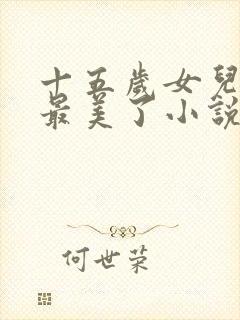 十五歲女兒
最美了小說
何世荣